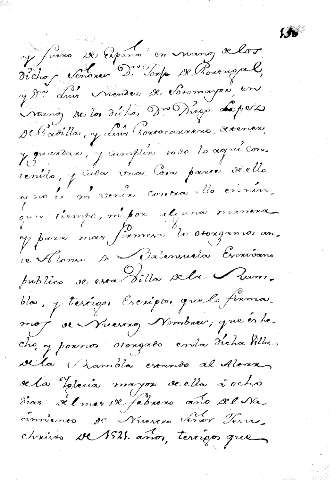 y fuero de España en manos de los
dichos Señores Dn. Jorge de Portugal,
y Dn. Luis Mendes de Sotomayor, en
manos de los dichos Dn. Diego Lopez
de Padilla, y Luis Portocarrero, de tener
y guardar, y cumplir todo lo aqui con-
tenido, y cada una cosa parte de ello
y no ir ni venir contra ello en nin-
gun tiempo, ni por alguna manera
y para mas firmeza lo otorgamos an-
te Alonso de Valenzuela Escribano
publico de esta Villa de la Ram-
bla, y testigos Escriptos que lo firma-
mos de Nuestros Nombres, que es fe-
cho, y por nos otorgado en la dicha Villa
de la Rambla estando al
de la Iglesia mayor de ella a ocho
dias del mes de febrero año del Na-
cimiento de Nuestro Señor Jesu-
christo de 1521. años, testigos que